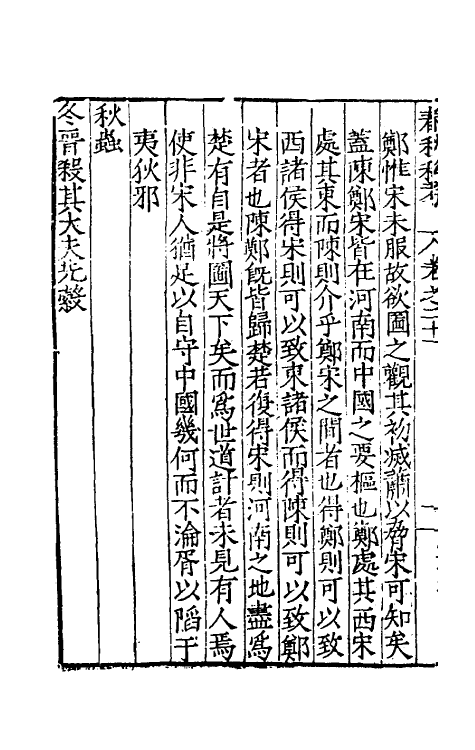 鄭惟宋未服故欲圖之觀其初滅蕭以脅宋可知矣
蓋陳鄭宋皆在河南而中國之要樞也鄭處其西宋
處其東而陳則介乎鄭宋之間者也得鄭則可以致
西諸侯得宋則可以致東諸侯而得陳則可以致鄭
宋者也陳鄭旣皆歸楚若復得宋則河南之地盡爲
楚有自是將圖天下矣而爲世道計者未見有人焉
使非宋人猶足以自守中國幾何而不淪胥以陷于
夷狄邪
秋螽
冬晉殺其大夫先縠